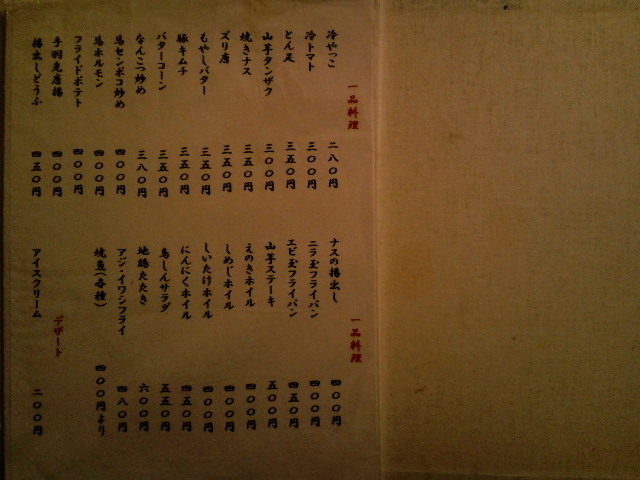 一品料理
冷やっこ 二八〇円
冷トマト 三〇〇円
とん足 三五〇円
山芋タンザク 三〇〇円
焼きナス 三五〇円
ズリ唐 三五〇円
もやしバター 三五〇円
豚キムチ 三五〇円
バターコーン 三五〇円
なんこつ炒め 三八〇円
馬センポコ炒め 四〇〇円
馬ホルモン 四〇〇円
フライドポテト 四〇〇円
手羽先唐揚 四〇〇円
揚出しどうふ 四五〇円
一品料理
ナスの揚出し 四〇〇円
ニラ玉フライパン 四〇〇円
エビ玉フライパン 四五〇円
山芋ステーキ 五〇〇円
えのきホイル 四〇〇円
しめじホイル 四〇〇円
しいたけホイル 四〇〇円
にんにくホイル 四五〇円
鳥しんサラダ 五五〇円
地鶏たたき 六〇〇円
アジ・イワシフライ 四八〇円
焼魚(各種) 四〇〇円より
デザート
アイスクリーム 二〇〇円